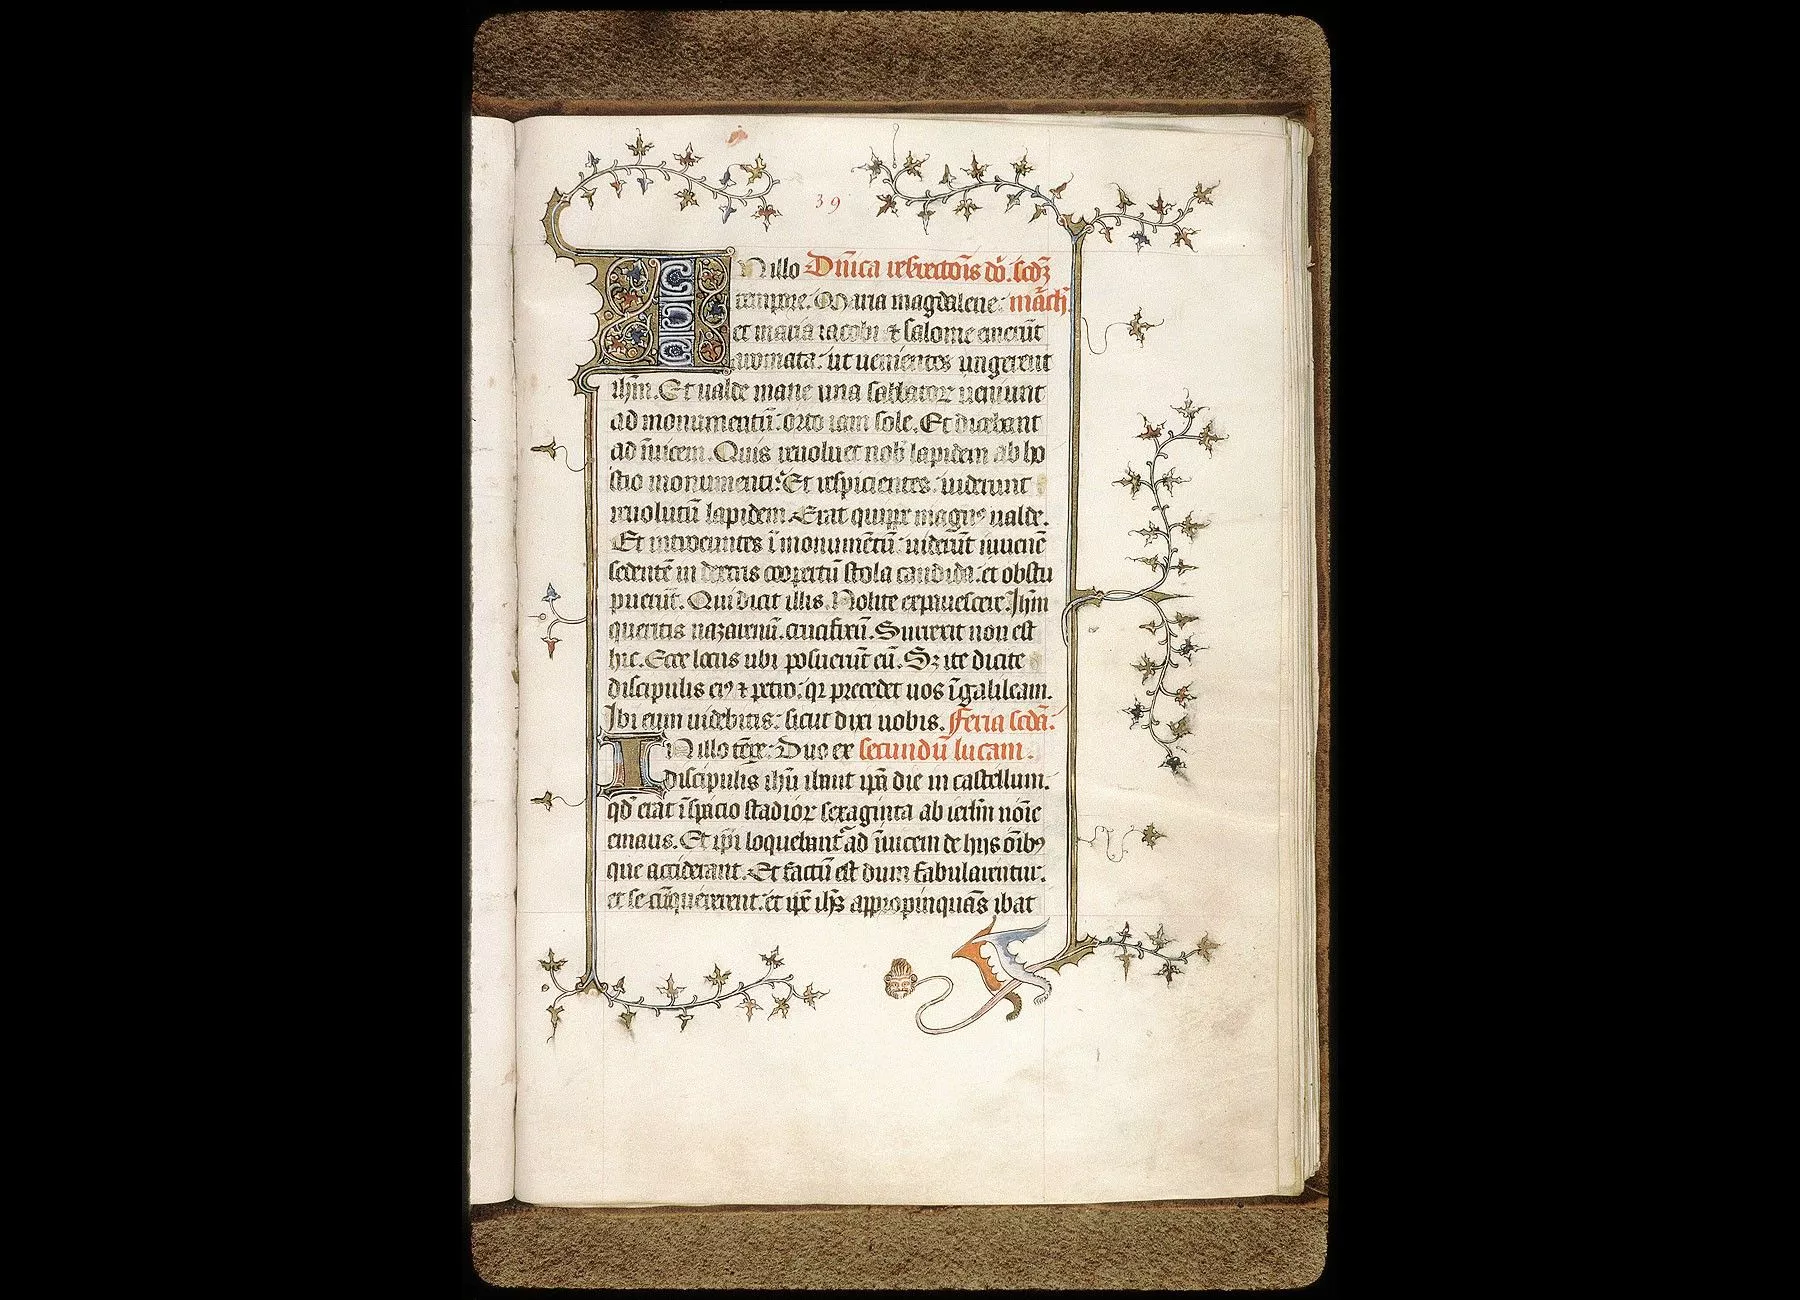 39
IN illo Dñica resurectõis dñ. scdꝫ
tempore. Maria magdalene: march.
et maria iacobi ⁊ salome emerūt
aromata: ut uenientes ungerent
ihm̄. Et ualde mane una sabbatoꝝ ueniunt
ad monumentū: orto iam sole. Et dicebant
ad īuicem. Quis reuoluet nob̄ lapidem ab ho
stio monumenti: Et respicientes: uiderunt
reuolutū lapidem. Erat quippe magnꝰ ualde.
Et introeuntes ī monumētū: uiderūt iuuenē
sedentē in dextris coopertū stola candida: et obstu
puerūt. Qui dicit illis. Nolite expauescere. Ihm̄
queritis nazarenū. crucifixū. Surrexit non est
hic. Ecce locus ubi posuerūt eū. Sꝫ ite dicite
discipulis eiꝰ ⁊ petro: qr precedet uos ī galileam.
Ibi eum uidebitis: sicut dixi uobis. Feria scdā.
IN illo tꝑe: Duo ex secundū lucam.
discipulis ihū ibant ipā die in castellum.
qd̄ erat ī spacio stadioꝝ sexaginta ab ierlm̄ noīe
emaus. Et ip̄i loquebant̄ ad īuicem de hiis oībꝰ
que acciderant. Et factū est dum fabularentur.
et secū quererent: et ip̄e ih̄s appropinquās ibat